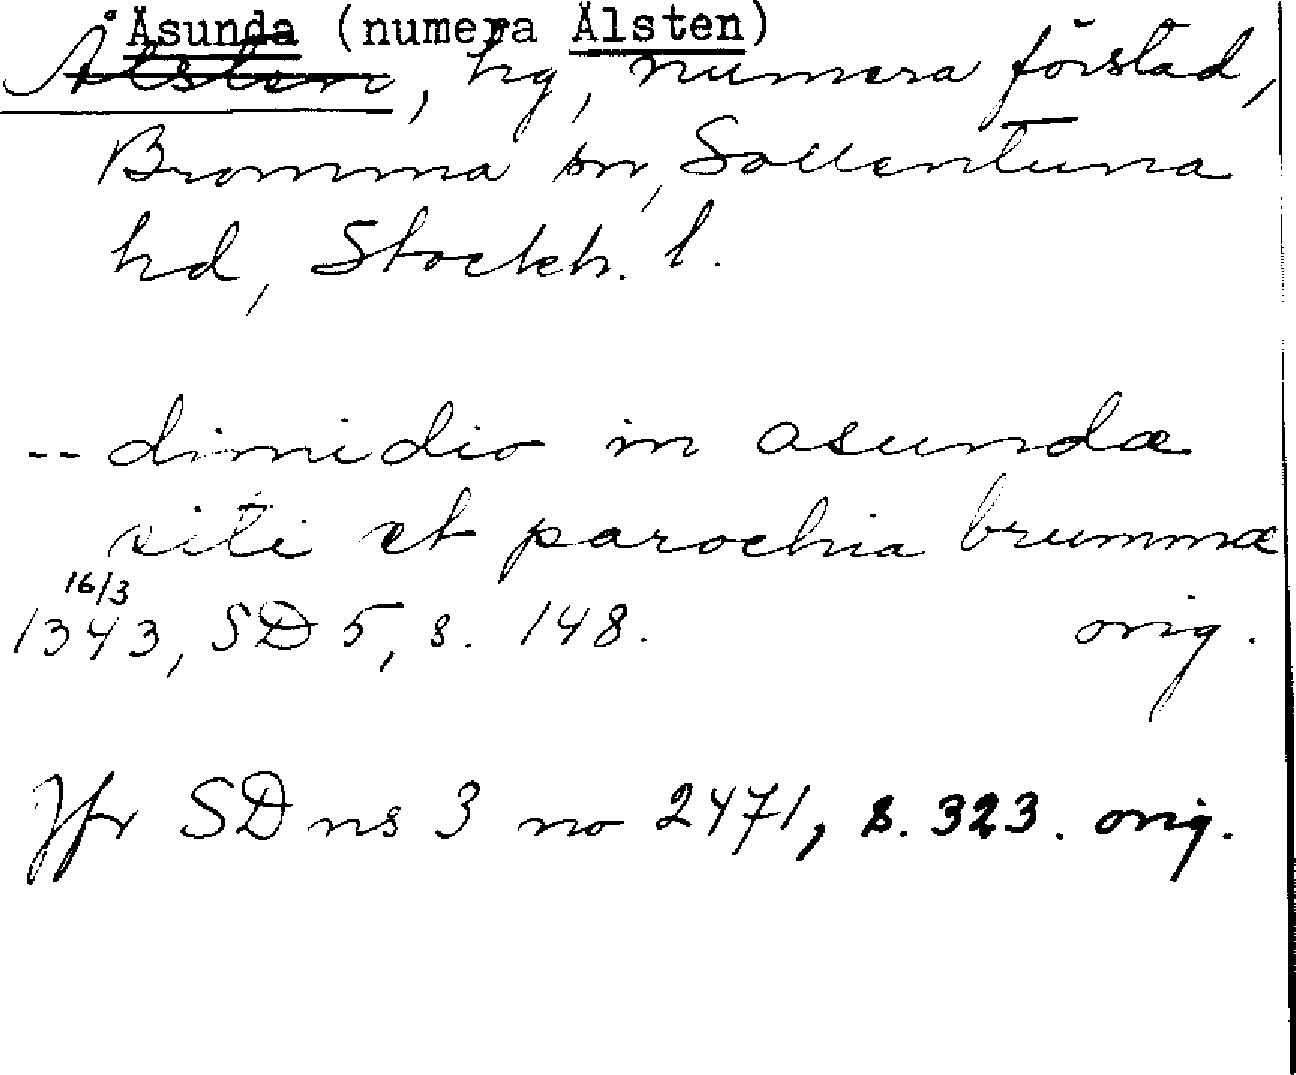 Åsunda (numera Ålsten)
Ålsten, hg, numera förstad,
Bromma sn, Sollentuna
hd, Stockh. l.
-- dimidio in asundæ
siti et parochia brummæ
16/3
1343, SD 5, s. 148. orig.
Jfr SD ns 3 no 2471, s. 323. orig.